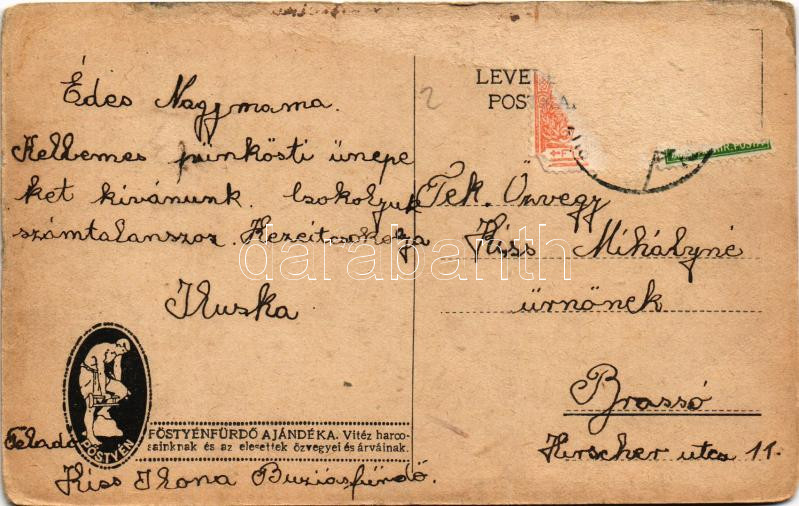 Édes Nagymama.
Kellemes pünkösti ünepe
ket kivánunk. Csokoljuk
számtalanszor. Kezeitcsokolja
Iluska
PÖSTYÉN
PÖSTYÉNFÜRDŐ AJÁNDÉKA. Vitéz harco-
sainknak és az elesettek özvegyei és árváinak.
Feladó
Kiss Ilona Buziásfürdő.
2
LEVE
POS
Tek. Özvegy
Kiss Mihályné
úrnőnek
Brassó
Hirscher utca 11.
darabanth